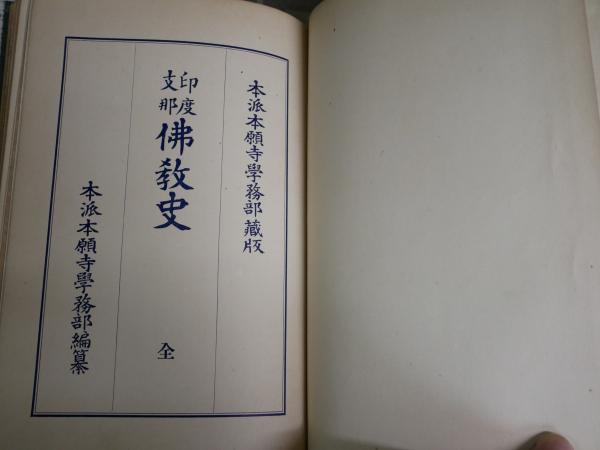 本派本願寺學務部藏版
印度支那佛教史 全
本派本願寺學務部編纂